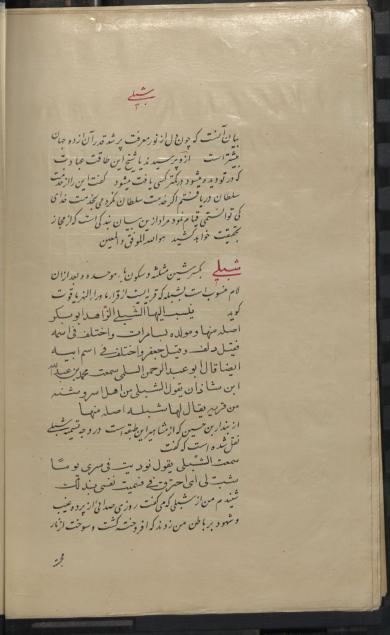 شبلی
بیان آنست که چون دل از نور معرفت پر شد قدر آن از ده جهان
بیشتر است از و پرسیدند یا شیخ این طاقت عبادت
که در تو دیده میشود در کمتر کسی یافت میشود گفت این را از خدمت
سلطان دریافتم اگر خدمت سلطان نکردمی بخدمت خدای
کی توانستمی قیام نمود مراد ازین سخن بندگی است که از مجاز
بحقیقت خواهد کشید هو الله الموفق و المعین
شبلی بکسر شین مثلثه و سکون باء موحده و بعد از ان
لام منسوب است بشبله که قریه ایست از قراء ماوراء النهر یاقوت
گوید ینسب الیها الشبلی الزاهد ابو بکر
اصله منها و مولده بسامراء و اختلف فی اسمه
فقیل دلف و قیل جعفر و اختلف فی اسم ابیه
ایضا قال ابو عبد الرحمن السلمی سمعت محمد بن عبد الله
ابن شاذان یقول الشبلی من اهل اسروشنه
من قریة یقال لها شبلیه اصله منها
از بندار بن حسین که از مشاهیر این طبقه است در وجه تسمیه شبلی
نقل شده است که گفت
سمعت الشبلی یقول نودیت فی سری یوما
شب لی ای احترق فی فسمیت نفسی بذلک
شنیدم من از شبلی که می گفت روزی صدائی از پرده غیب
و شهود بر باطن من زدند که افروخته گشت و سوخت از نار